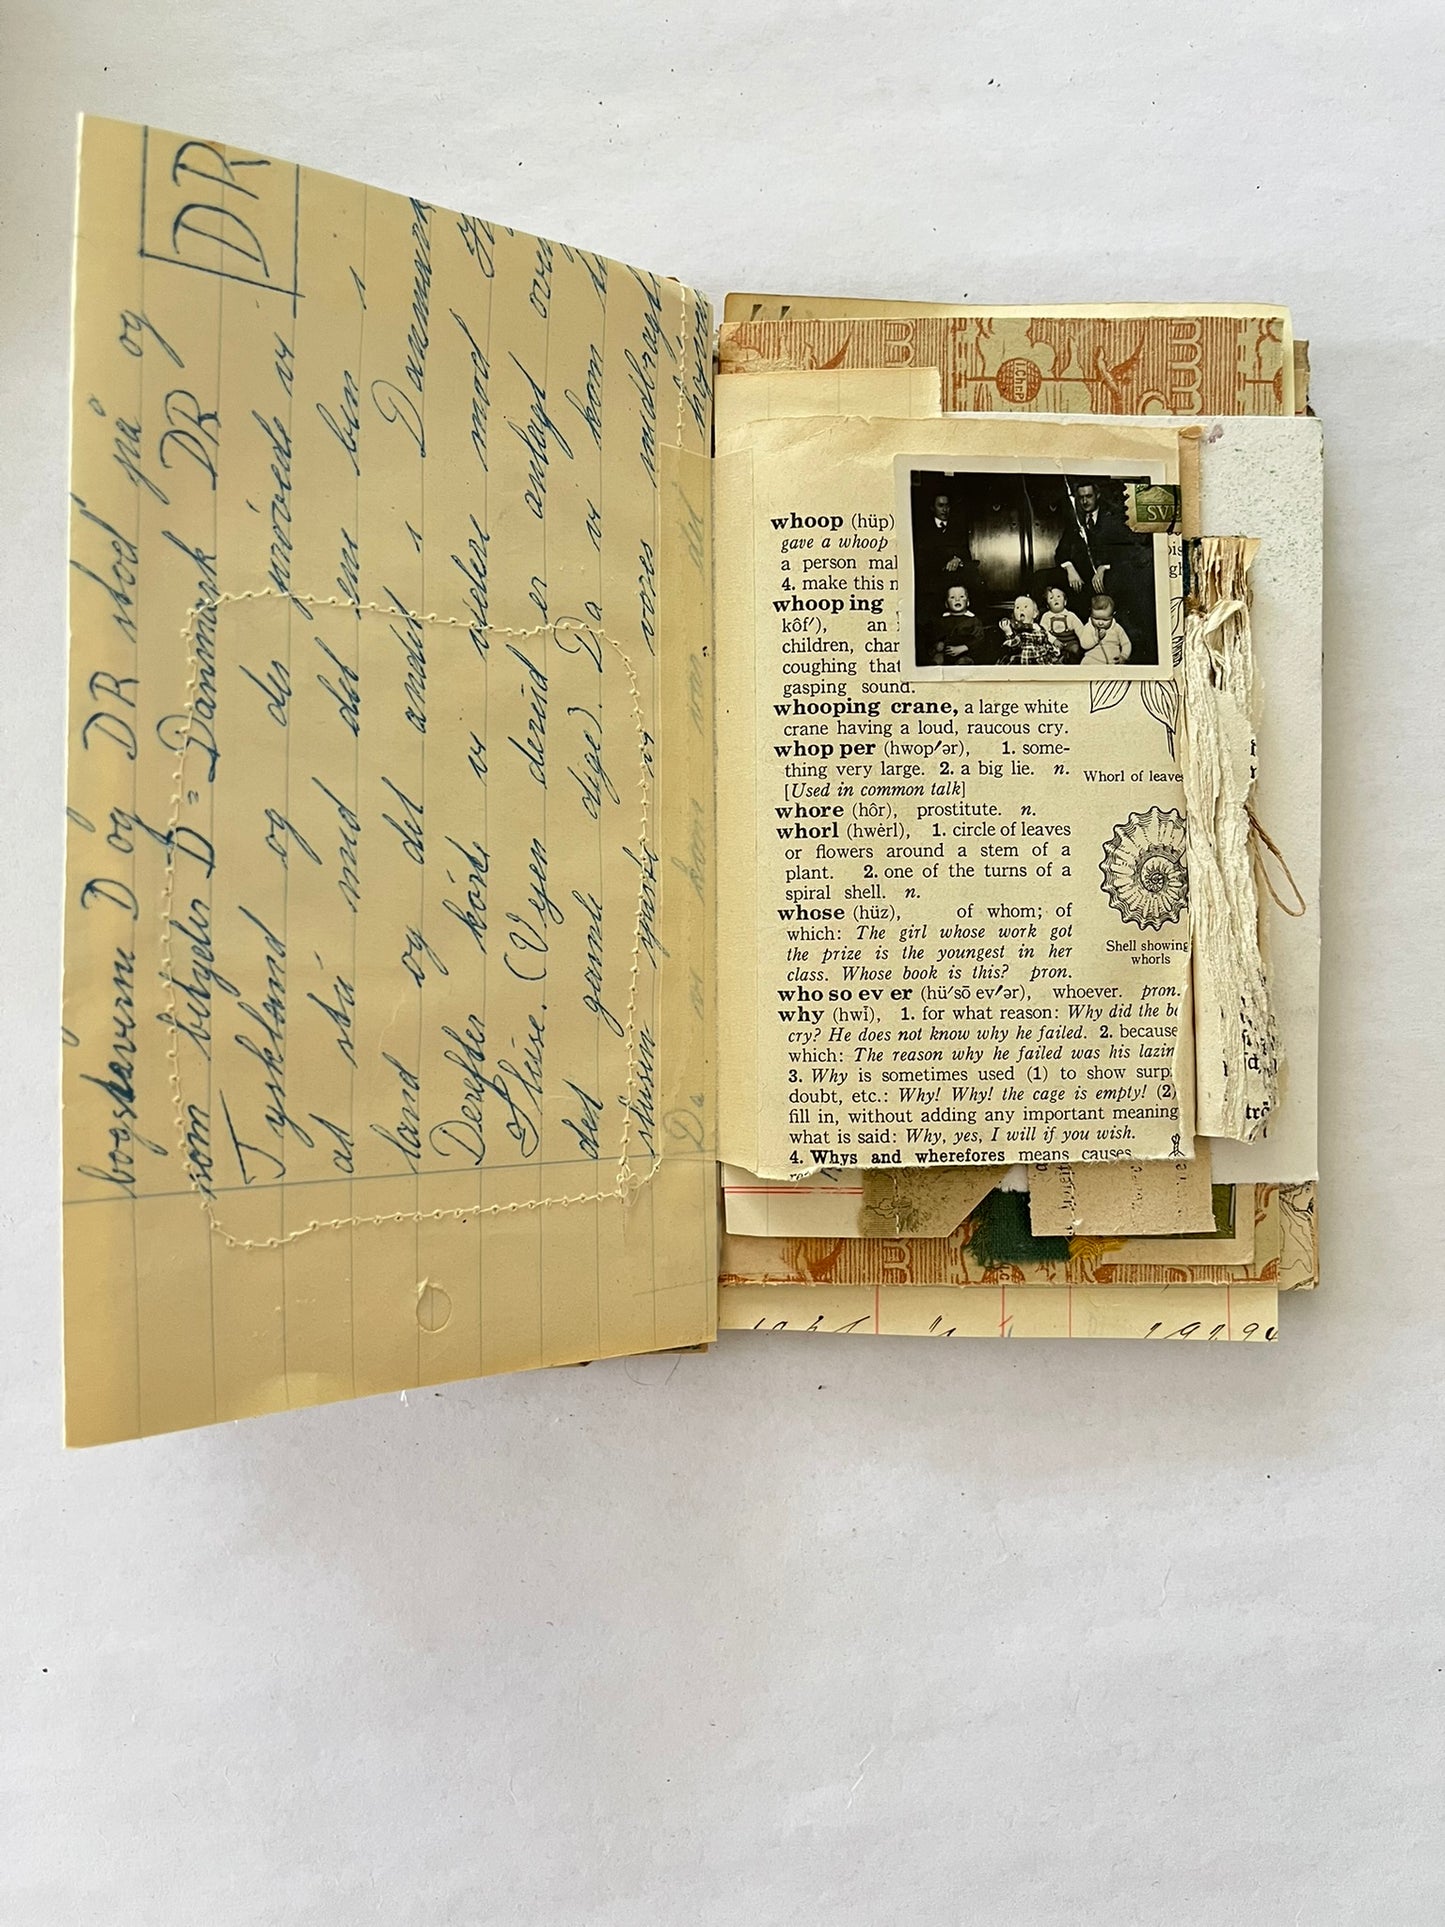 bogstaverne D og DR stod på og
som betyder D = Danmark DR DR
Tyskland og der prøvede vi
at stå med det ene ben i
land og det andet i Danmark
Derefter kørte vi videre mod
det gamle dige). Da vi kom
Slusen. (Vejen derind er anlagt over
slusen spiste vi vores medbragte
Da vi kom
whoop (hüp)
gave a whoop
a person mal
4. make this n
whoop ing
kôf′), an
children, char
coughing that
gasping sound.
whooping crane, a large white
crane having a loud, raucous cry.
whop per (hwop′ər), 1. some-
thing very large. 2. a big lie. n.
[Used in common talk]
whore (hôr), prostitute. n.
whorl (hwėrl), 1. circle of leaves
or flowers around a stem of a
plant. 2. one of the turns of a
spiral shell. n.
whose (hüz), of whom; of
which: The girl whose work got
the prize is the youngest in her
class. Whose book is this? pron.
who so ev er (hü′sō ev′ər), whoever. pron.
why (hwī), 1. for what reason: Why did the b
cry? He does not know why he failed. 2. because
which: The reason why he failed was his lazin
3. Why is sometimes used (1) to show surp
doubt, etc.: Why! Why! the cage is empty! (2)
fill in, without adding any important meaning
what is said: Why, yes, I will if you wish.
4. Whys and wherefores means causes
SV
Whorl of leaves
Shell showing
whorls